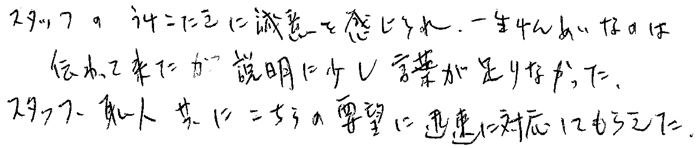 スタッフのうけこたえに誠意を感じられ、一生けんめいなのは
伝わって来たが説明に少し言葉が足りなかった。
スタッフ、職人共にこちらの要望に迅速に対応してもらえた。